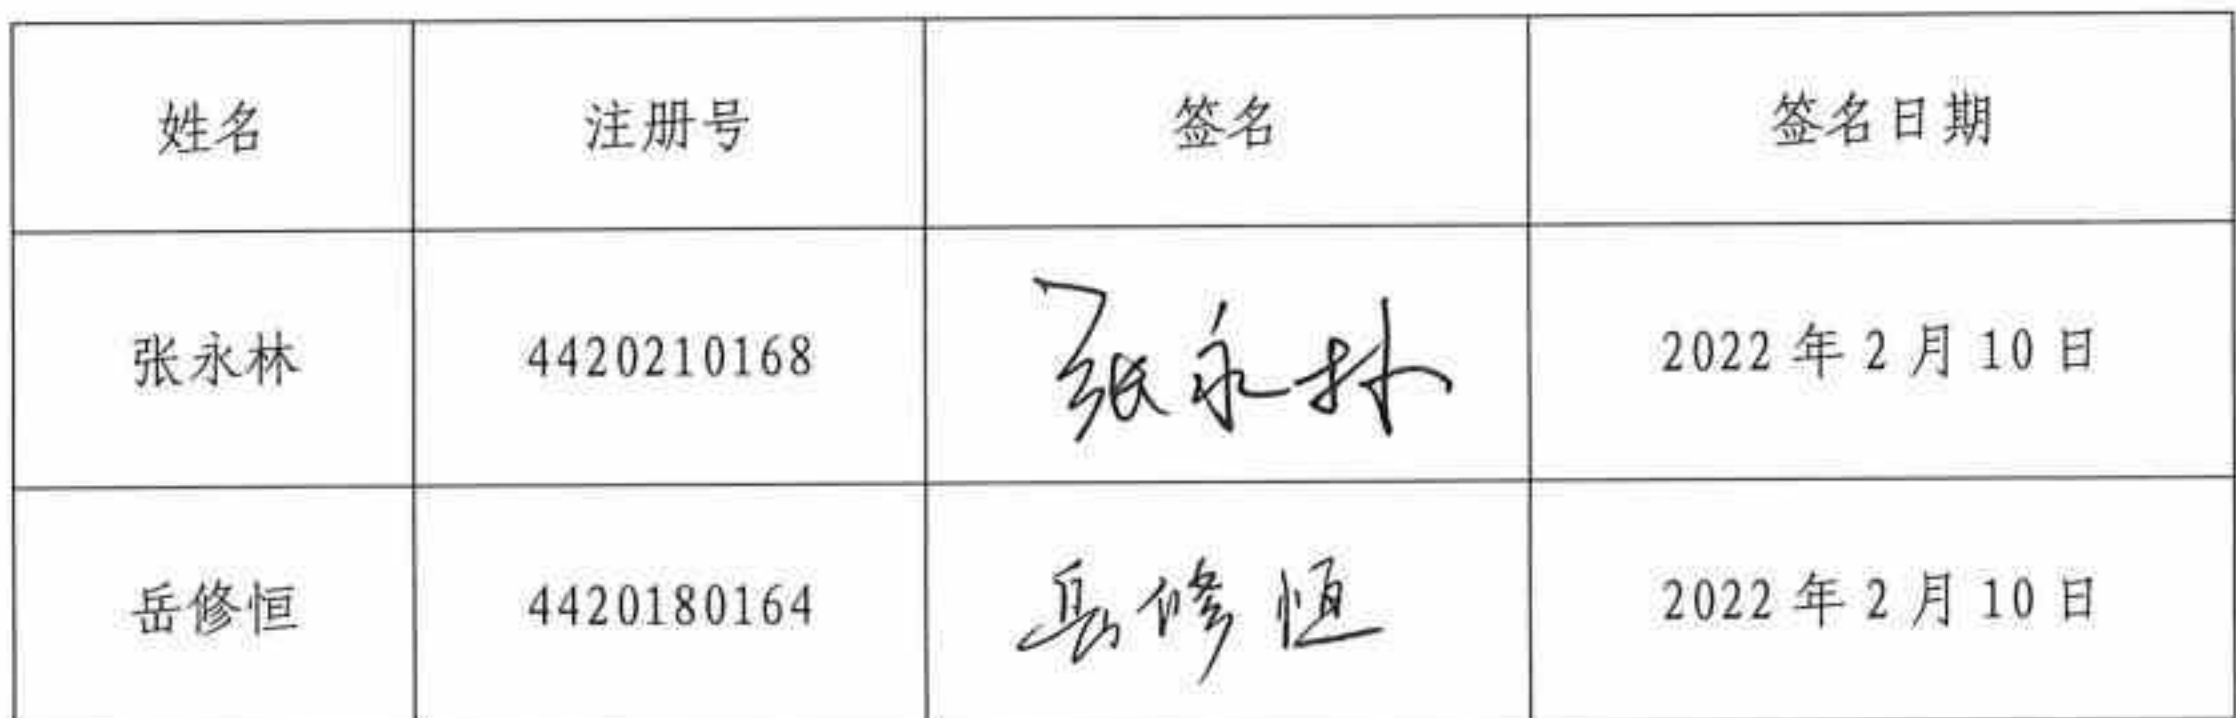 姓名 注册号 签名 签名日期
张永林 4420210168 张永林 2022年2月10日
岳修恒 4420180164 岳修恒 2022年2月10日